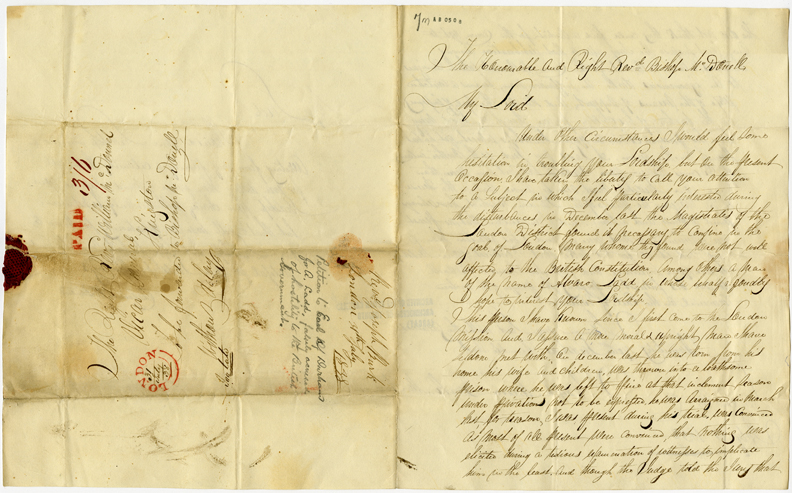 The Honorable and Right Revd Bishop McDonell
My Lord
Under other Circumstances I would feel some
hesitation in troubling your Lordship but on the present
Occasion I have taken the liberty to Call your attention
to a Subject in which I feel particularly interested during
the disturbances in December last the Magistrates of the
London District found it necessary to Confine in the
goal of London many whom they found were not well
affected to the British Constitution among others a man
of the name of Alvaro Ladd in whose behalf I fondly
I hope to interest your Lordship.
This person I have known since I first came to the London
Mission and a more moral & upright man I have
seldom met with, in december last he was torn from his
home his wife and children, was thrown into a loathsome
prison where he was left to pine at that inclement season
under privations not to be expressed he was arraigned in March
last for treason, I was present during his trial was Convinced
as most of all present were convinced that nothing was
elicited during a tedious examination of witnesses to implicate
him in the least, and though the Judge told the Jury that
PAID 3/6
Vicar
Kingston
To be forwarded to Bishop McDonell
Toronto
LONDON
Revd Joseph Burk
London
July
Petition to Earl of Durham
for A. Ladd, falsely accused
of hostility to the British
Government.